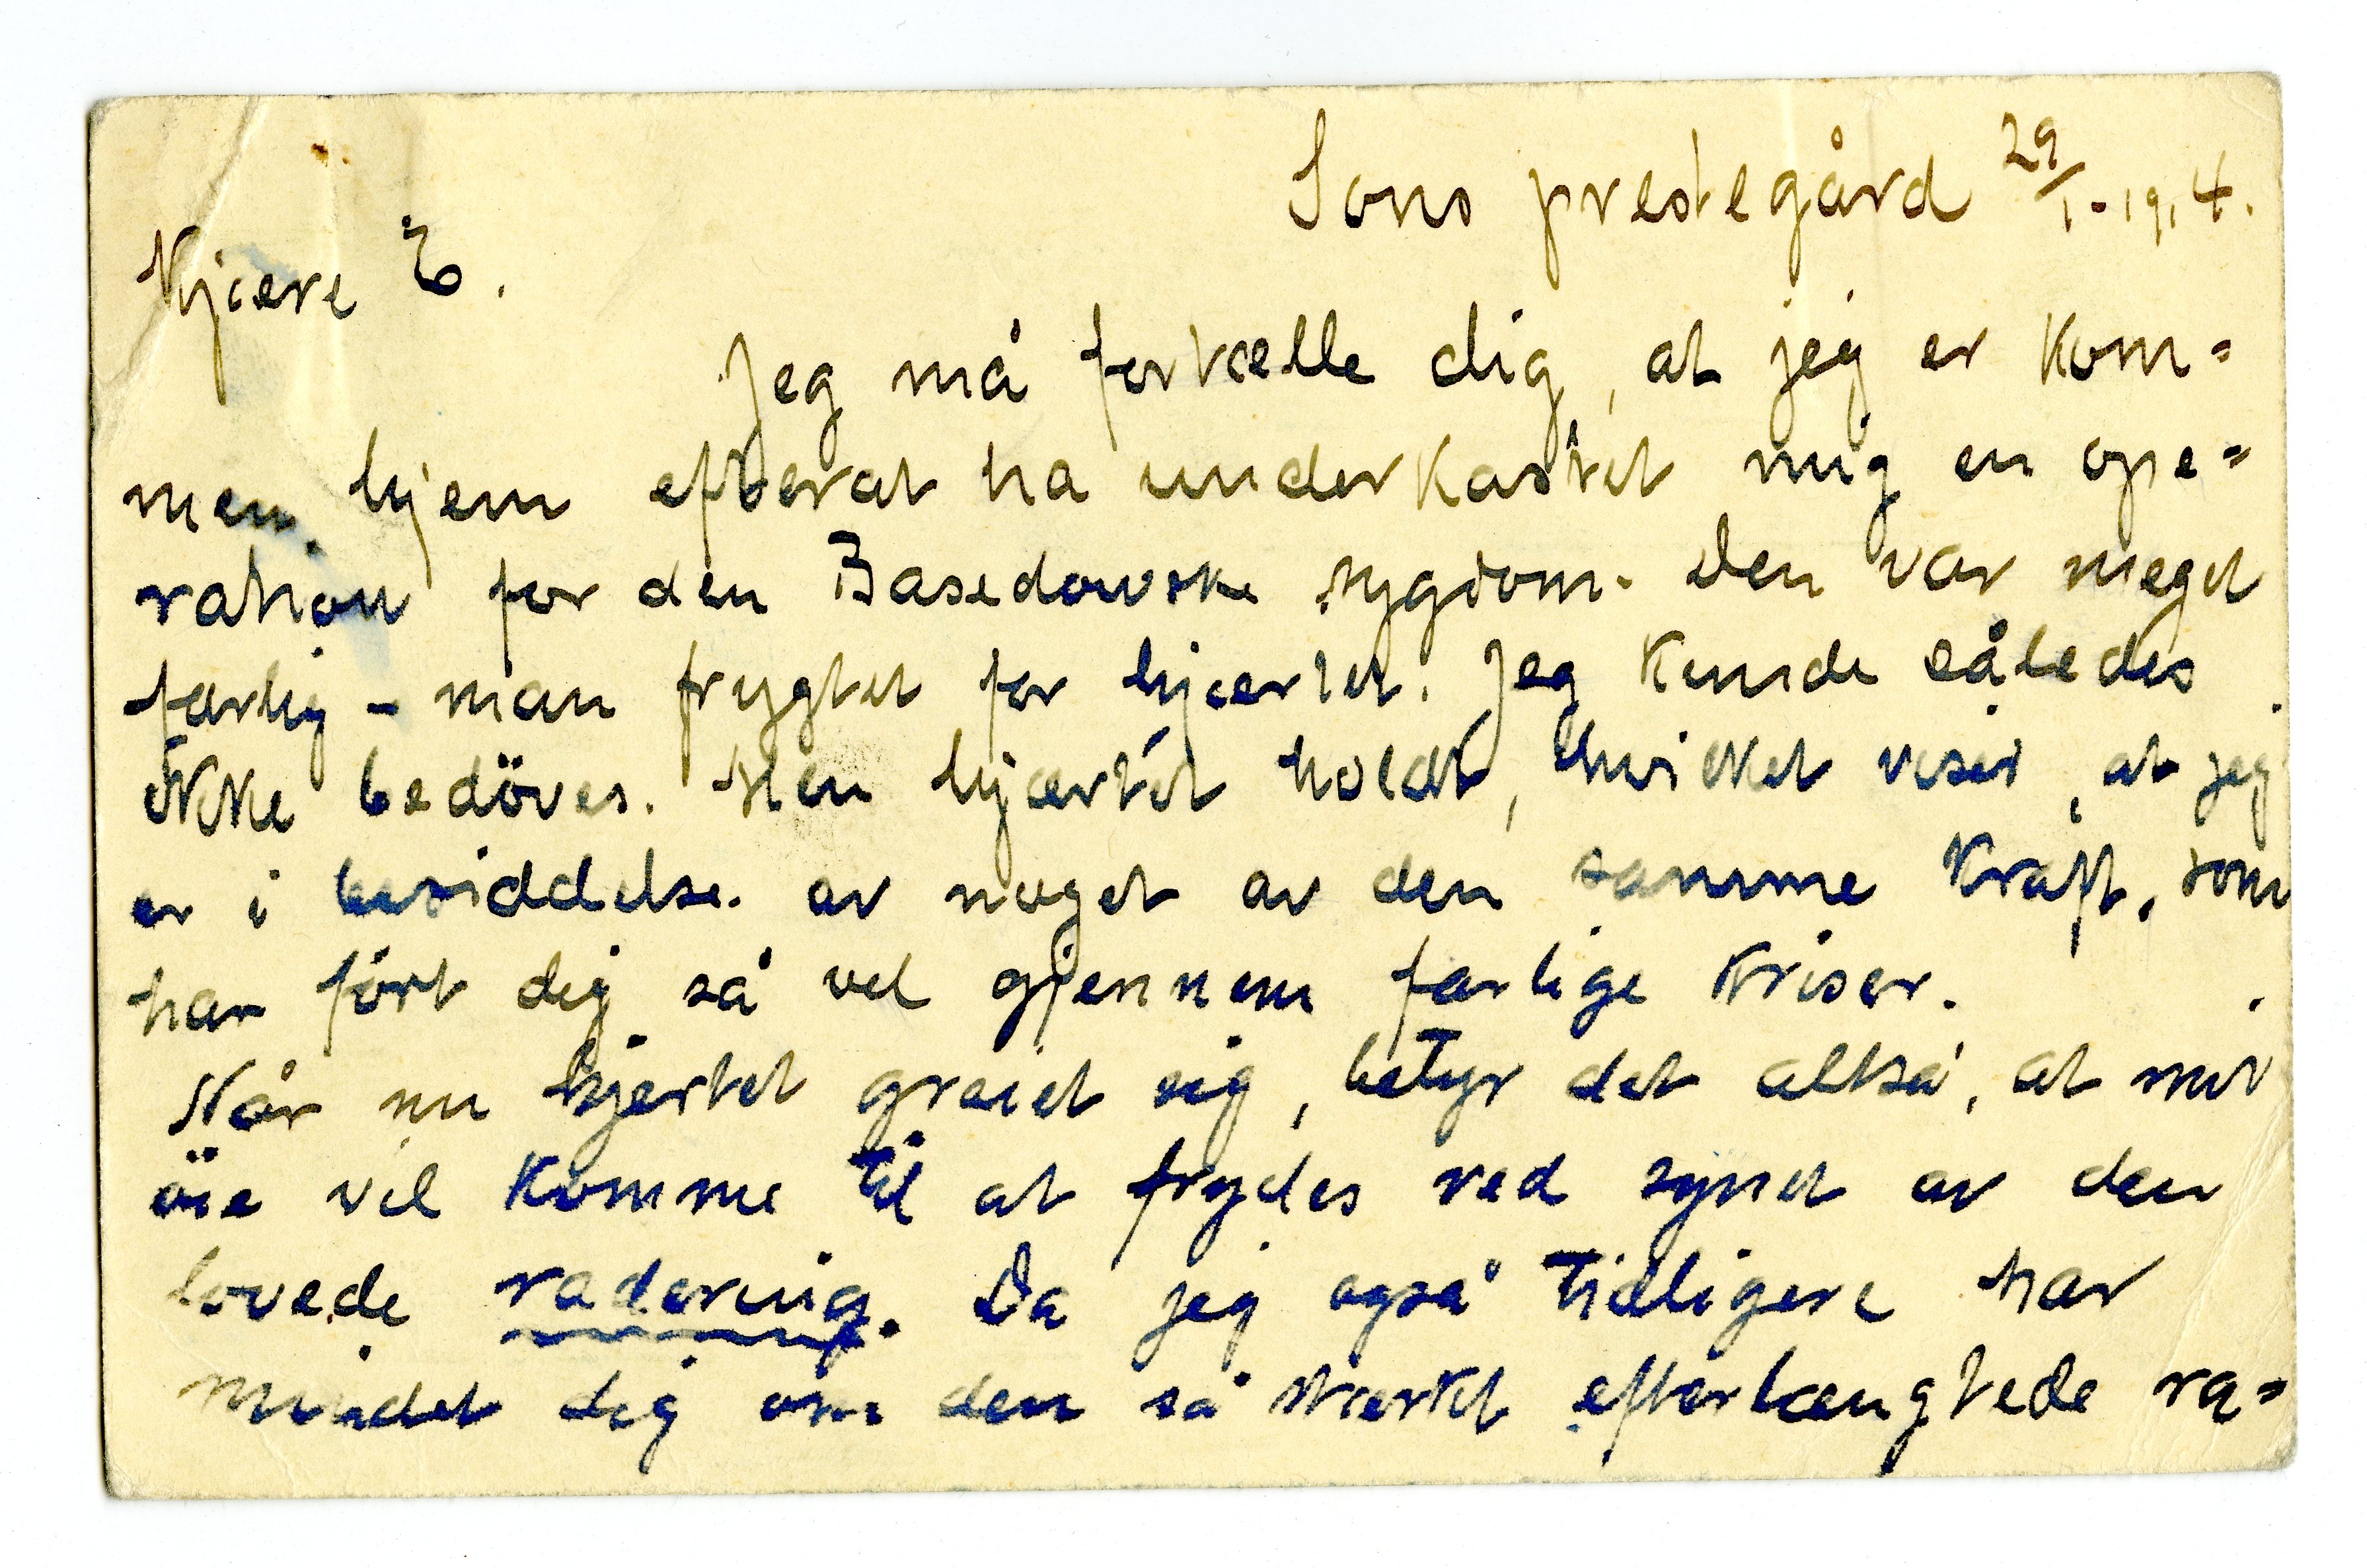 Sons prestegård 29/1-1914.
Kjære E.
Jeg må fortælle dig, at jeg er kom=
men hjem efterat ha underkastet mig en ope=
ration for den Basedowske sygdom. Den var meget
farlig – man frygtet for hjærtet. Jeg kunde således
ikke bedöves. Men hjærtet holdt, hvilket viser, at jeg
er i besiddelse av noget av den samme kraft, som
har fört dig så vel gjennem farlige kriser.
Når nu hjertet greiet sig, betyr det altså, at mit
öie vil komme til at frydes ved synet av den
lovede radering. Da jeg også tidligere har
mindet dig om den så stærkt efterlængtede ra=